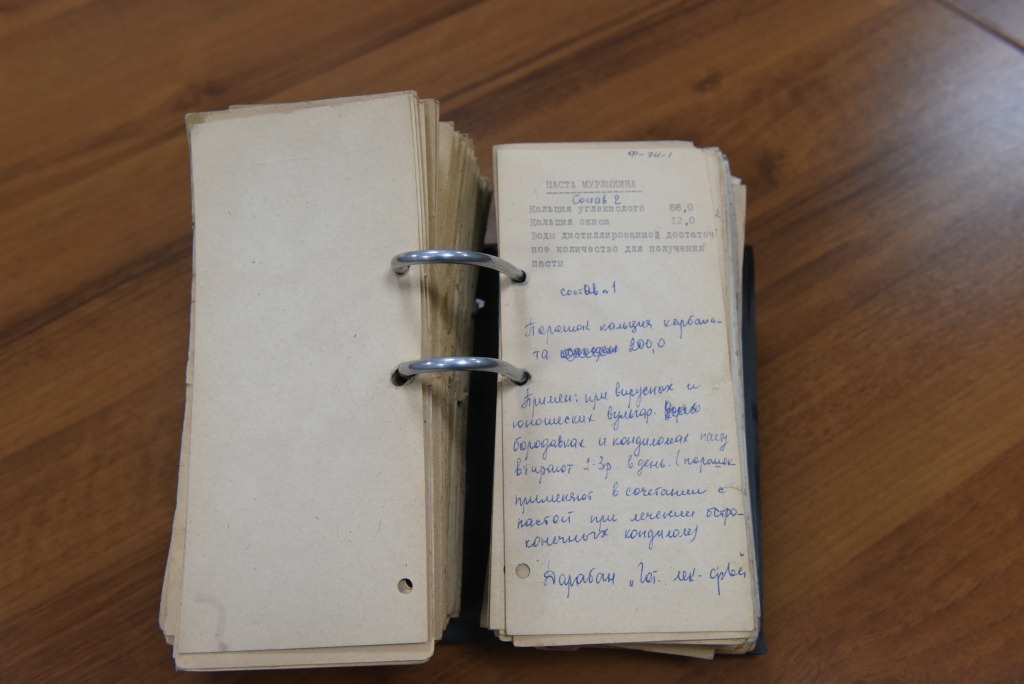 ф-711-1
ПАСТА МУРЛЫКИНА
Состав 2
Кальция углекислого 88,0
Кальция окиси 12,0
Воды дистиллированной достаточ
ное количество для получения
пасты
состав 1
Порошок кальция карбона-
та 200,0
Примен: при вирусных и
юношеских вульгар.
бородавках и кондиломах пасту
втирают 2-3 р. в день. (порошок
применяют в сочетании с
пастой при лечении остро-
конечных кондилом)
"Гот. лек. ср-в"